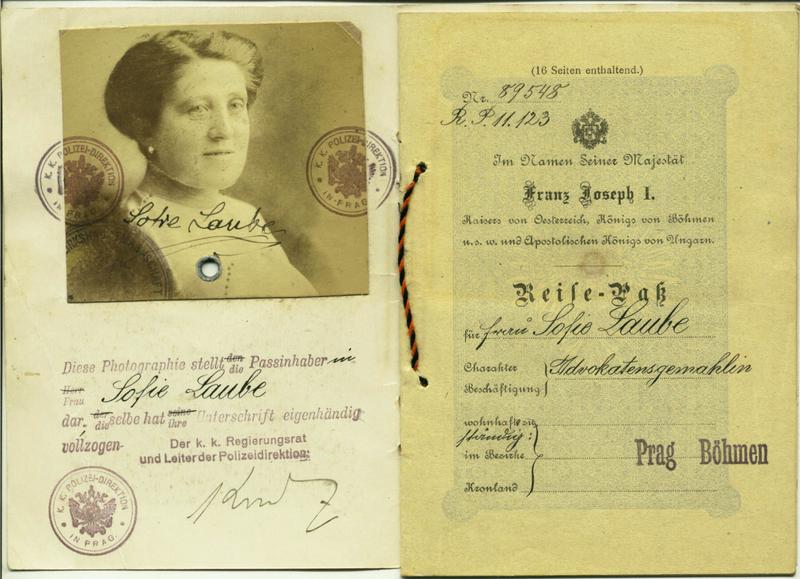 K. K. POLIZEI-DIREKTION
IN PRAG.
K. K. POLIZEI-DIREKTION
IN PRAG.
Sofie Laube
Diese Photographie stellt den die Passinhaber in
Herr Frau Sofie Laube
dar, der dieselbe hat seine ihre Unterschrift eigenhändig
vollzogen-
Der k. k. Regierungsrat
und Leiter der Polizeidirektion:
K. K. POLIZEI-DIREKTION
IN PRAG.
(16 Seiten enthaltend.)
Nr. 89548
R. P. 11.123
Im Namen Seiner Majestät
Franz Joseph I.
Kaisers von Oesterreich, Königs von Böhmen
u. s. w. und Apostolischen Königs von Ungarn.
Reise-Paß
für Frau Sofie Laube
Charakter
Beschäftigung
Advokatensgemahlin
wohnhaft
ständig:
im Bezirke
Prag Böhmen
Kronland